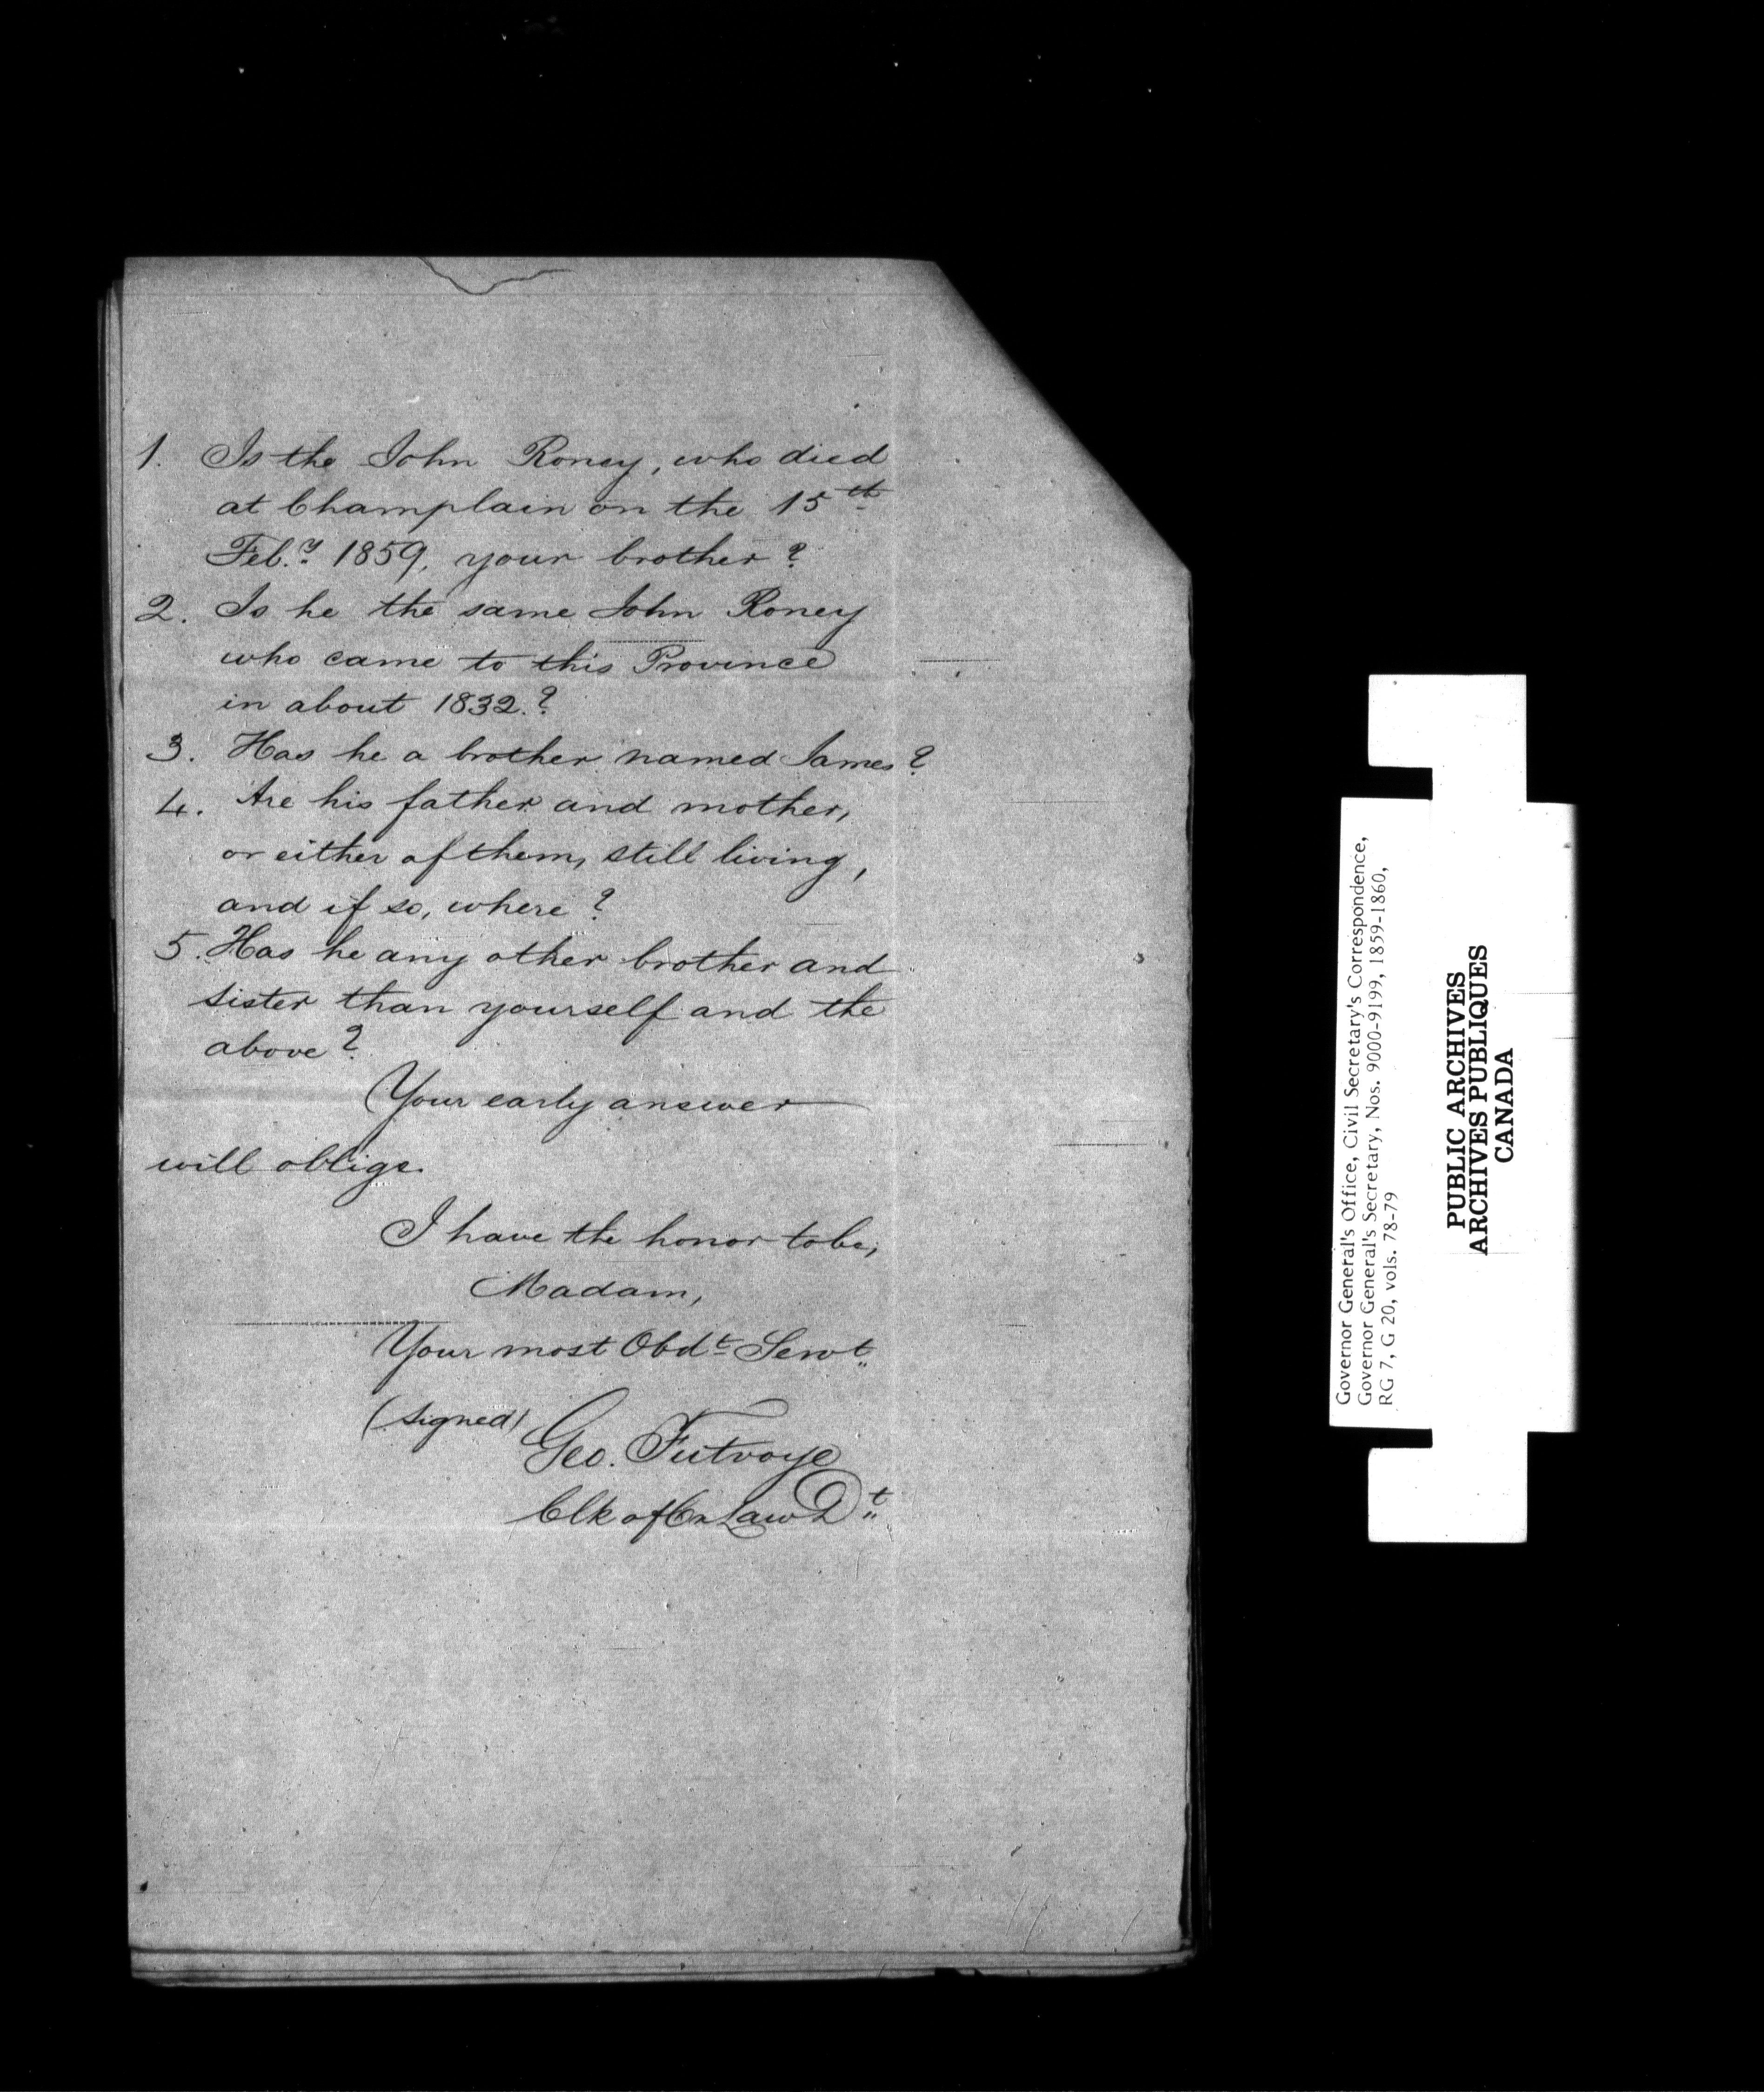 1. Is the John Roney, who died
at Champlain on the 15th
Feb.y 1859, your brother?
2. Is he the same John Roney
who came to this Province
in about 1832.?
3. Has he a brother named James?
4. Are his father and mother,
or either of them, still living,
and if so, where?
5. Has he any other brother and
sister than yourself and the
above?
Your early answer
will oblige.
I have the honor to be,
Madam,
Your most Obdt Servt
(signed) Geo. Futvoye
Clk of Cn Law Dt
Governor General's Office, Civil Secretary's Correspondence,
Governor General's Secretary, Nos. 9000-9199, 1859-1860,
RG 7, G 20, vols. 78-79
PUBLIC ARCHIVES
ARCHIVES PUBLIQUES
CANADA